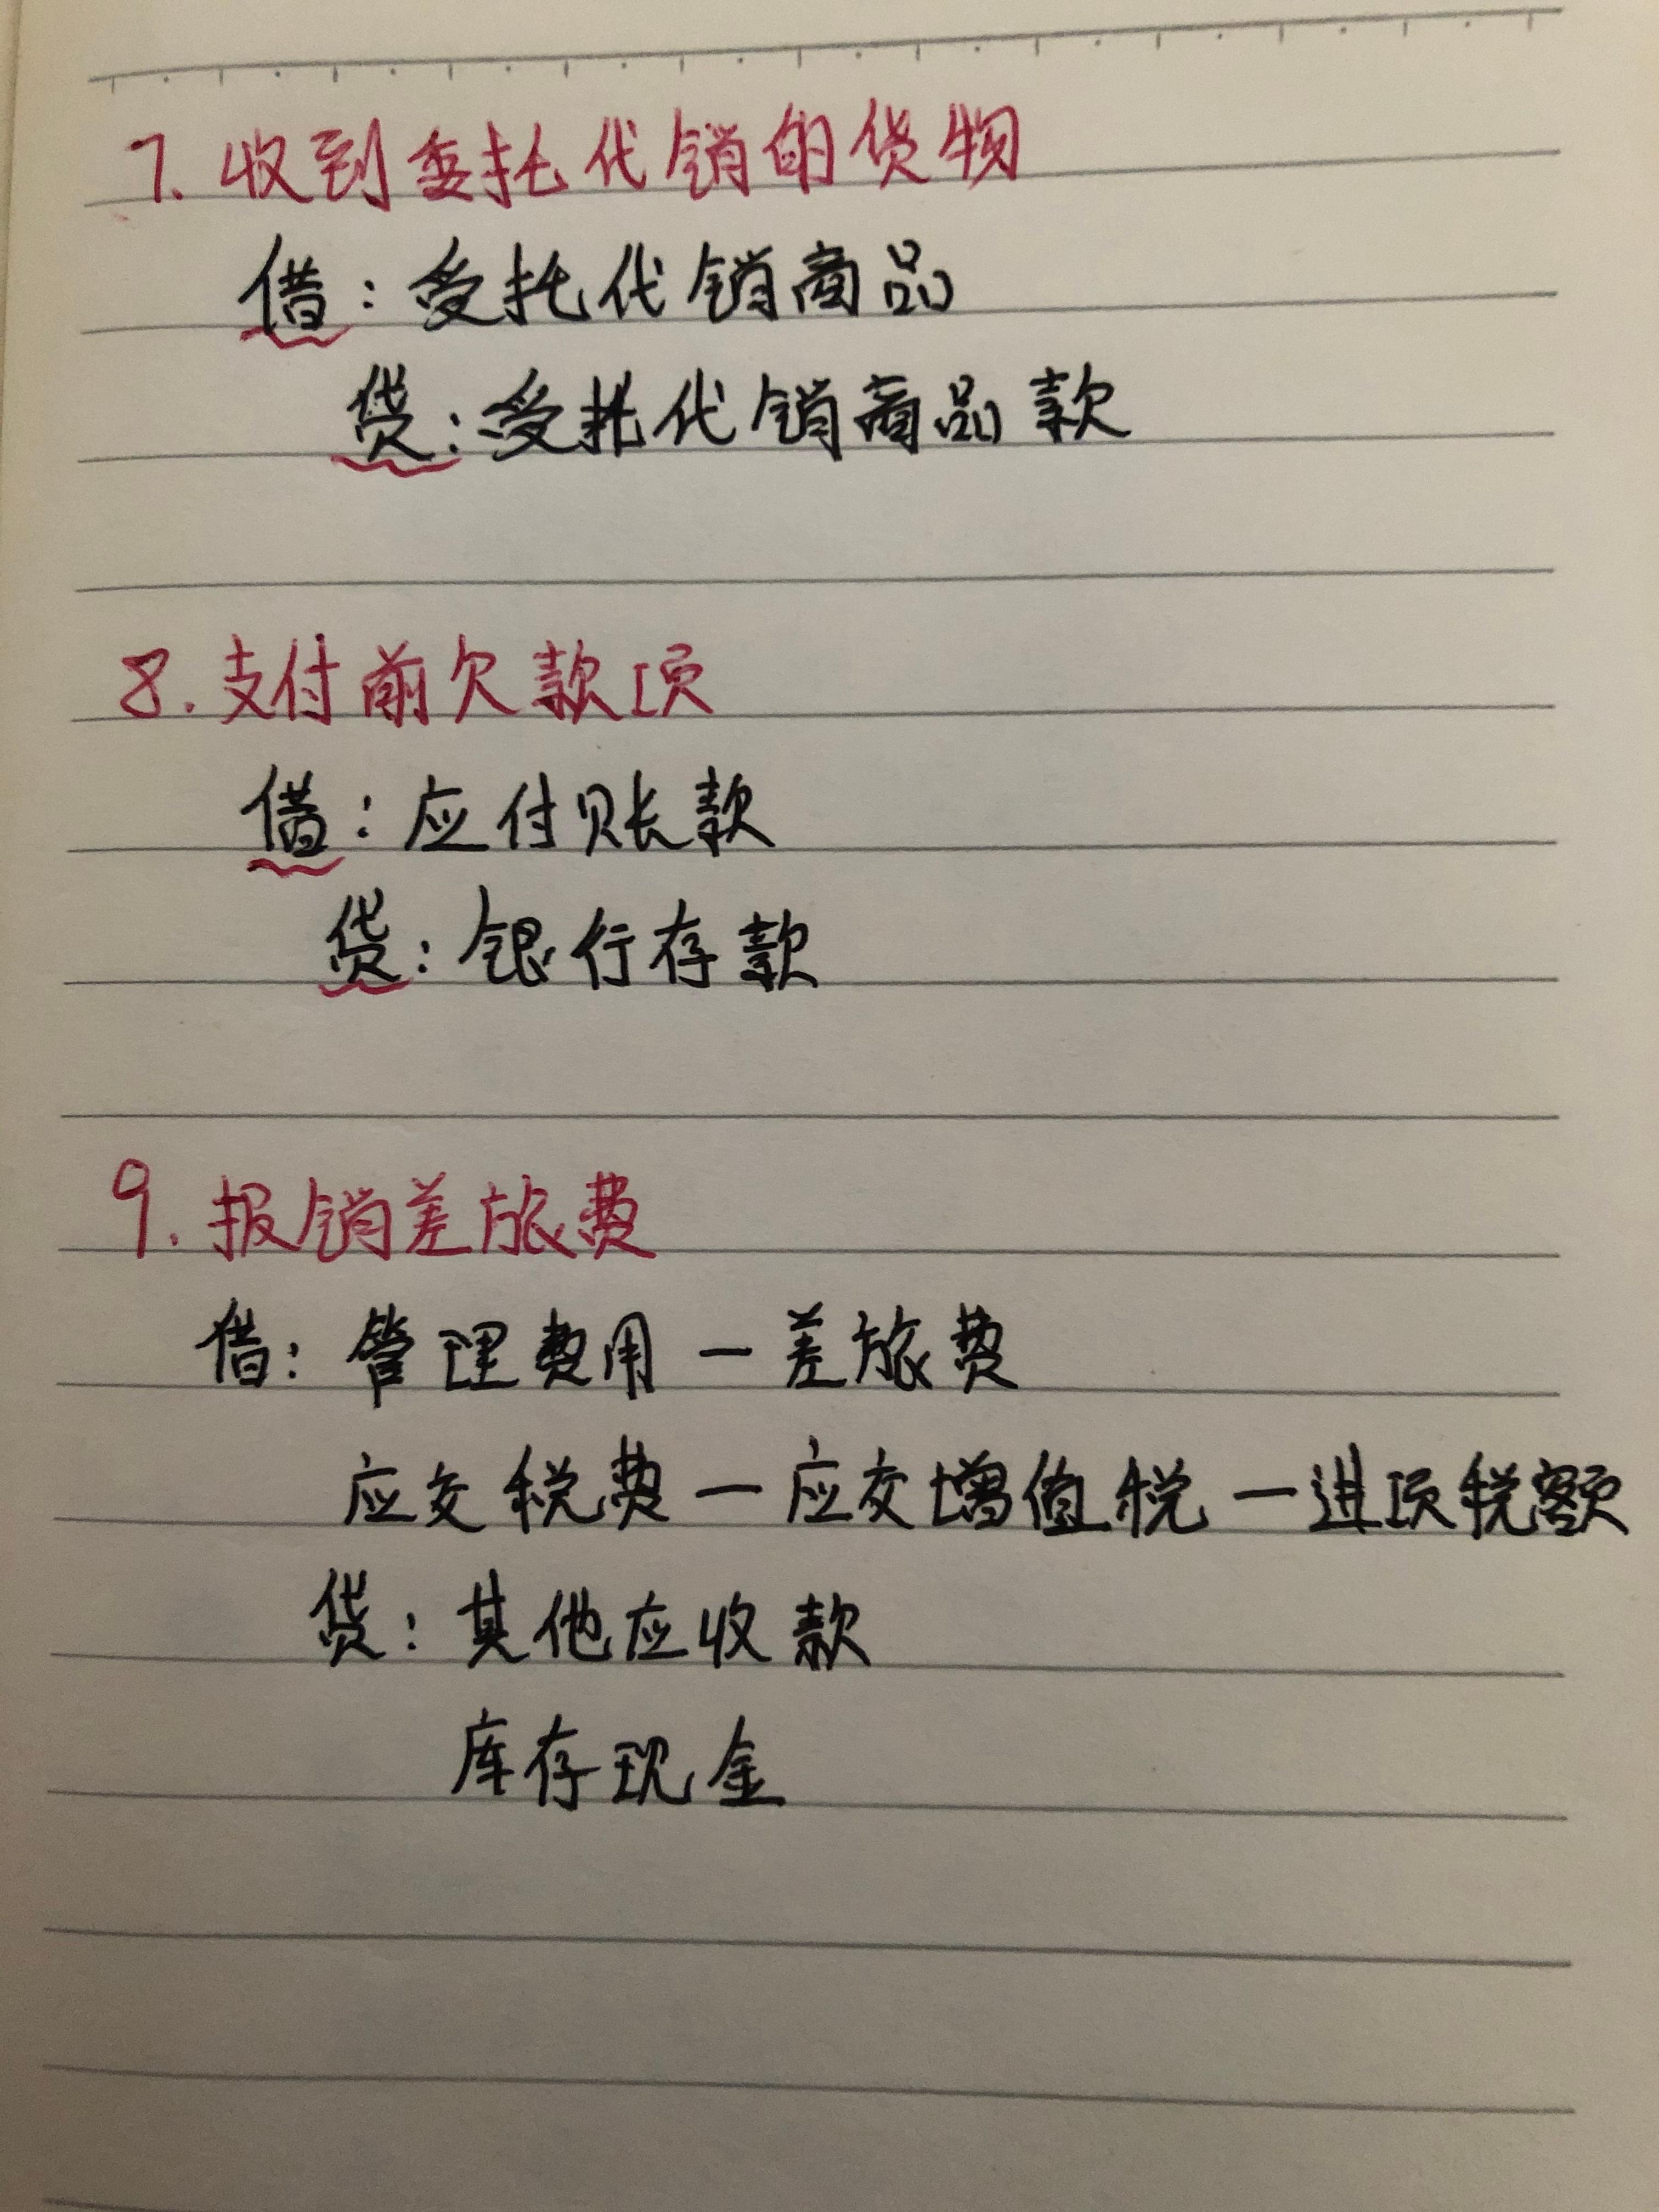 7. 收到委托代销的货物
借：受托代销商品
贷：受托代销商品款
8. 支付前欠款项
借：应付账款
贷：银行存款
9. 报销差旅费
借：管理费用 — 差旅费
应交税费 — 应交增值税 — 进项税额
贷：其他应收款
库存现金